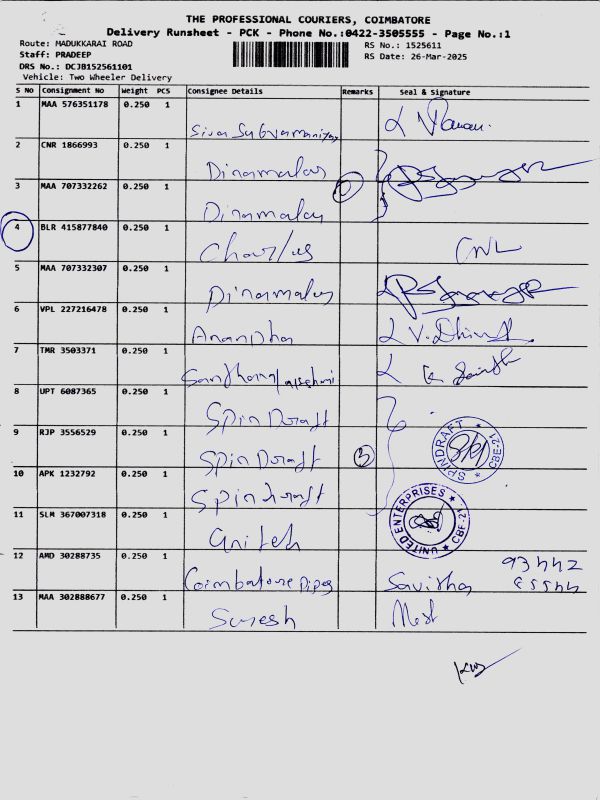 THE PROFESSIONAL COURIERS, COIMBATORE
Delivery Runsheet - PCK - Phone No.:0422-3505555 - Page No.:1
Route: MADUKKARAI ROAD
RS No.: 1525611
Staff: PRADEEP
RS Date: 26-Mar-2025
DRS No.: DCJB152561101
Vehicle: Two Wheeler Delivery
S No Consignment No Weight PCS Consignee Details Remarks Seal & Signature
1 MAA 576351178 0.250 1
2 CNR 1866993 0.250 1 Dinamalar
3 MAA 707332262 0.250 1 Dinamalar
4 BLR 415877840 0.250 1 Charles CNL
5 MAA 707332307 0.250 1 Dinamalar
6 VPL 227216478 0.250 1 Anandha
7 TMR 3503371 0.250 1
8 UPT 6087365 0.250 1 Spin Draft
9 RJP 3556529 0.250 1 Spin Draft 3 SPINDRAFT CBE-21
10 APK 1232792 0.250 1 Spindraft
11 SLM 367007318 0.250 1 United UNITED ENTERPRISES CBE-21
12 AMD 30288735 0.250 1 Coimbatore Pipes Savitha 93442
13 MAA 302888677 0.250 1 Suresh